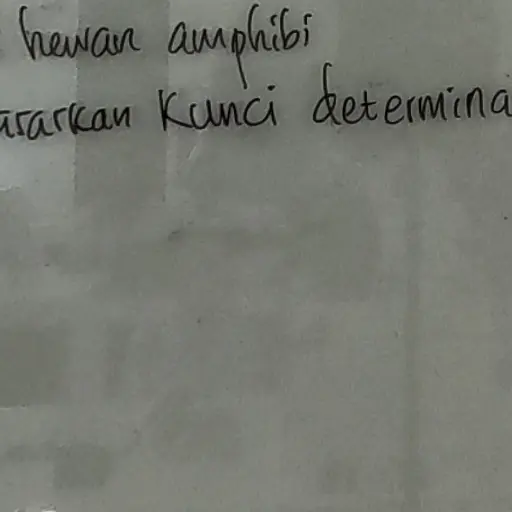 hewan amphibi
asarkan Kunci determina